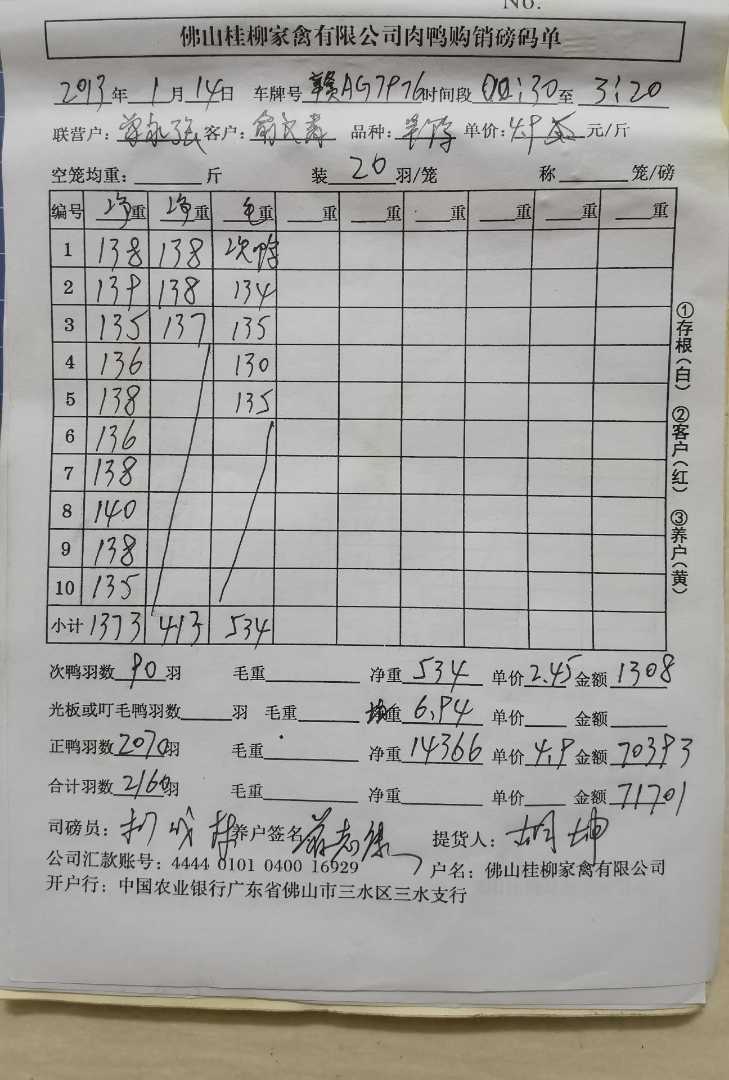 No.
佛山桂柳家禽有限公司肉鸭购销磅码单
2013年 1月 14日 车牌号 赣AG7976 时间段 00:30至 3:20
联营户: 客户: 品种: 单价: 元/斤
空笼均重: 斤 装 20 羽/笼 称 笼/磅
编号 净重 净重 毛重 重 重 重 重 重 重
1 138 138 次鸭
2 139 138 134
3 135 137 135
4 136 130
5 138 135
6 136
7 138
8 140
9 138
10 135
小计 1373 413 534
次鸭羽数 90 羽 毛重 净重 534 单价 2.45 金额 1308
光板或叮毛鸭羽数 羽 毛重 均重 6.94 单价 金额
正鸭羽数 2070 羽 毛重 净重 14366 单价 4.9 金额 70393
合计羽数 2160 羽 毛重 净重 单价 金额 71701
司磅员: 养户签名 提货人: 胡坤
公司汇款账号: 4444 0101 0400 16929 户名: 佛山桂柳家禽有限公司
开户行: 中国农业银行广东省佛山市三水区三水支行
①存根(白) ②客户(红) ③养户(黄)